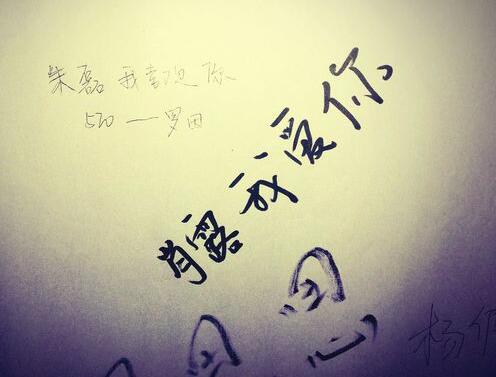 朱磊我喜欢你
520一罗田
肖露我爱你
思
杨